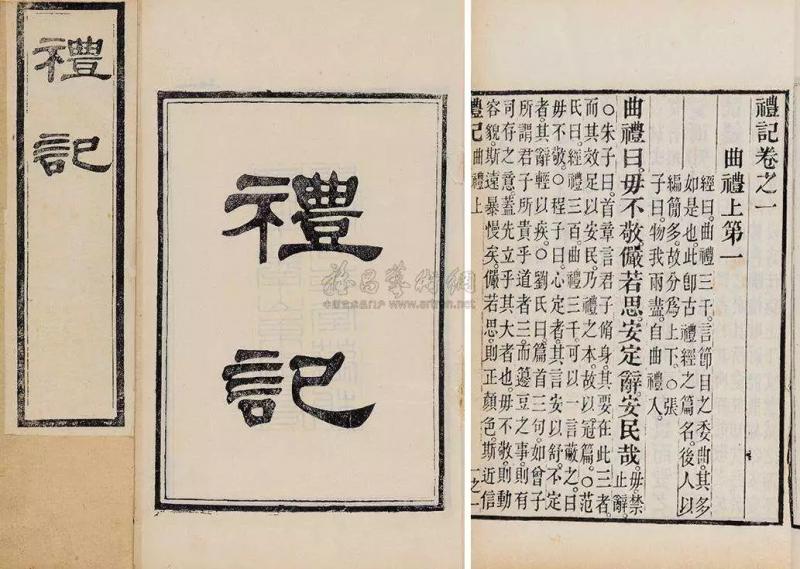 禮記
禮記
禮記卷之一
曲禮上第一
經曰。曲禮三千。言節目之委曲。其多
如是也。此卽古禮經之篇名。後人以
編簡多。故分爲上下。○張
子曰。物我兩盡。自曲禮入。
曲禮曰。毋不敬。儼若思。安定辭。安民哉。毋禁止辭。
○朱子曰。首章言君子脩身。其要在此三者。
而其效足以安民。乃禮之本。故以冠篇。○范
氏曰。經禮三百。曲禮三千。可以一言蔽之。曰
毋不敬。○程子曰。心定者。其言安以舒。不定
者。其辭輕以疾。○劉氏曰。篇首三句。如曾子
所謂君子所貴乎道者三。而籩豆之事。則有
司存之意。蓋先立乎其大者也。毋不敬。則動
容貌。斯遠暴慢矣。儼若思。則正顏色。斯近信
禮記 曲禮上 一之一
雅昌藝術網
www.artron.net